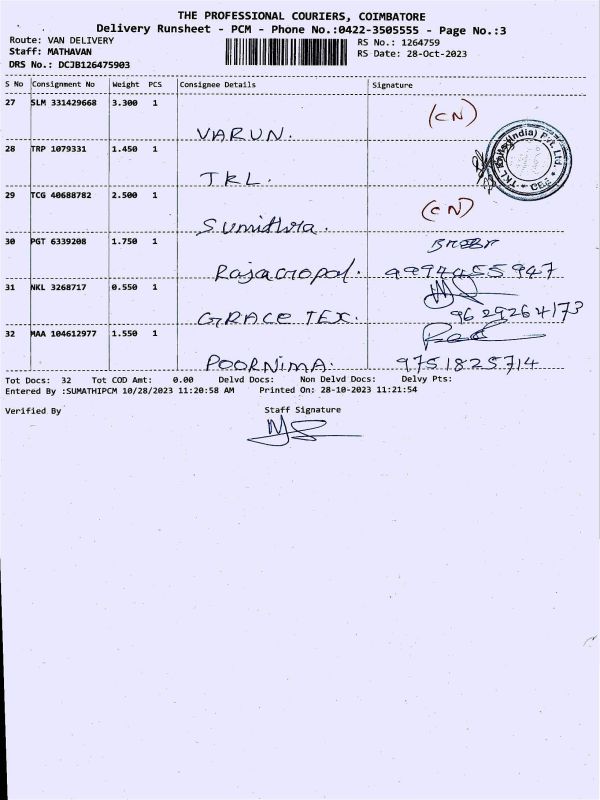 THE PROFESSIONAL COURIERS, COIMBATORE
Delivery Runsheet - PCM - Phone No.:0422-3505555 - Page No.:3
Route: VAN DELIVERY
RS No.: 1264759
Staff: MATHAVAN
RS Date: 28-Oct-2023
DRS No.: DCJB126475903
S No Consignment No Weight PCS Consignee Details Signature
27 SLM 331429668 3.300 1
(CN)
VARUN.
28 TRP 1079331 1.450 1
(India) Pvt. Ltd.
TKL
CBE
TKL.
29 TCG 40688782 2.500 1
(CN)
Sumithra.
30 PGT 6339208 1.750 1
Rajagopal. 9994455947
31 NKL 3268717 0.550 1
GRACE TEX. 9629264173
32 MAA 104612977 1.550 1
POORNIMA. 9751825714
Tot Docs: 32 Tot COD Amt: 0.00 Delvd Docs: Non Delvd Docs: Delvy Pts:
Entered By :SUMATHIPCM 10/28/2023 11:20:58 AM Printed On: 28-10-2023 11:21:54
Verified By Staff Signature